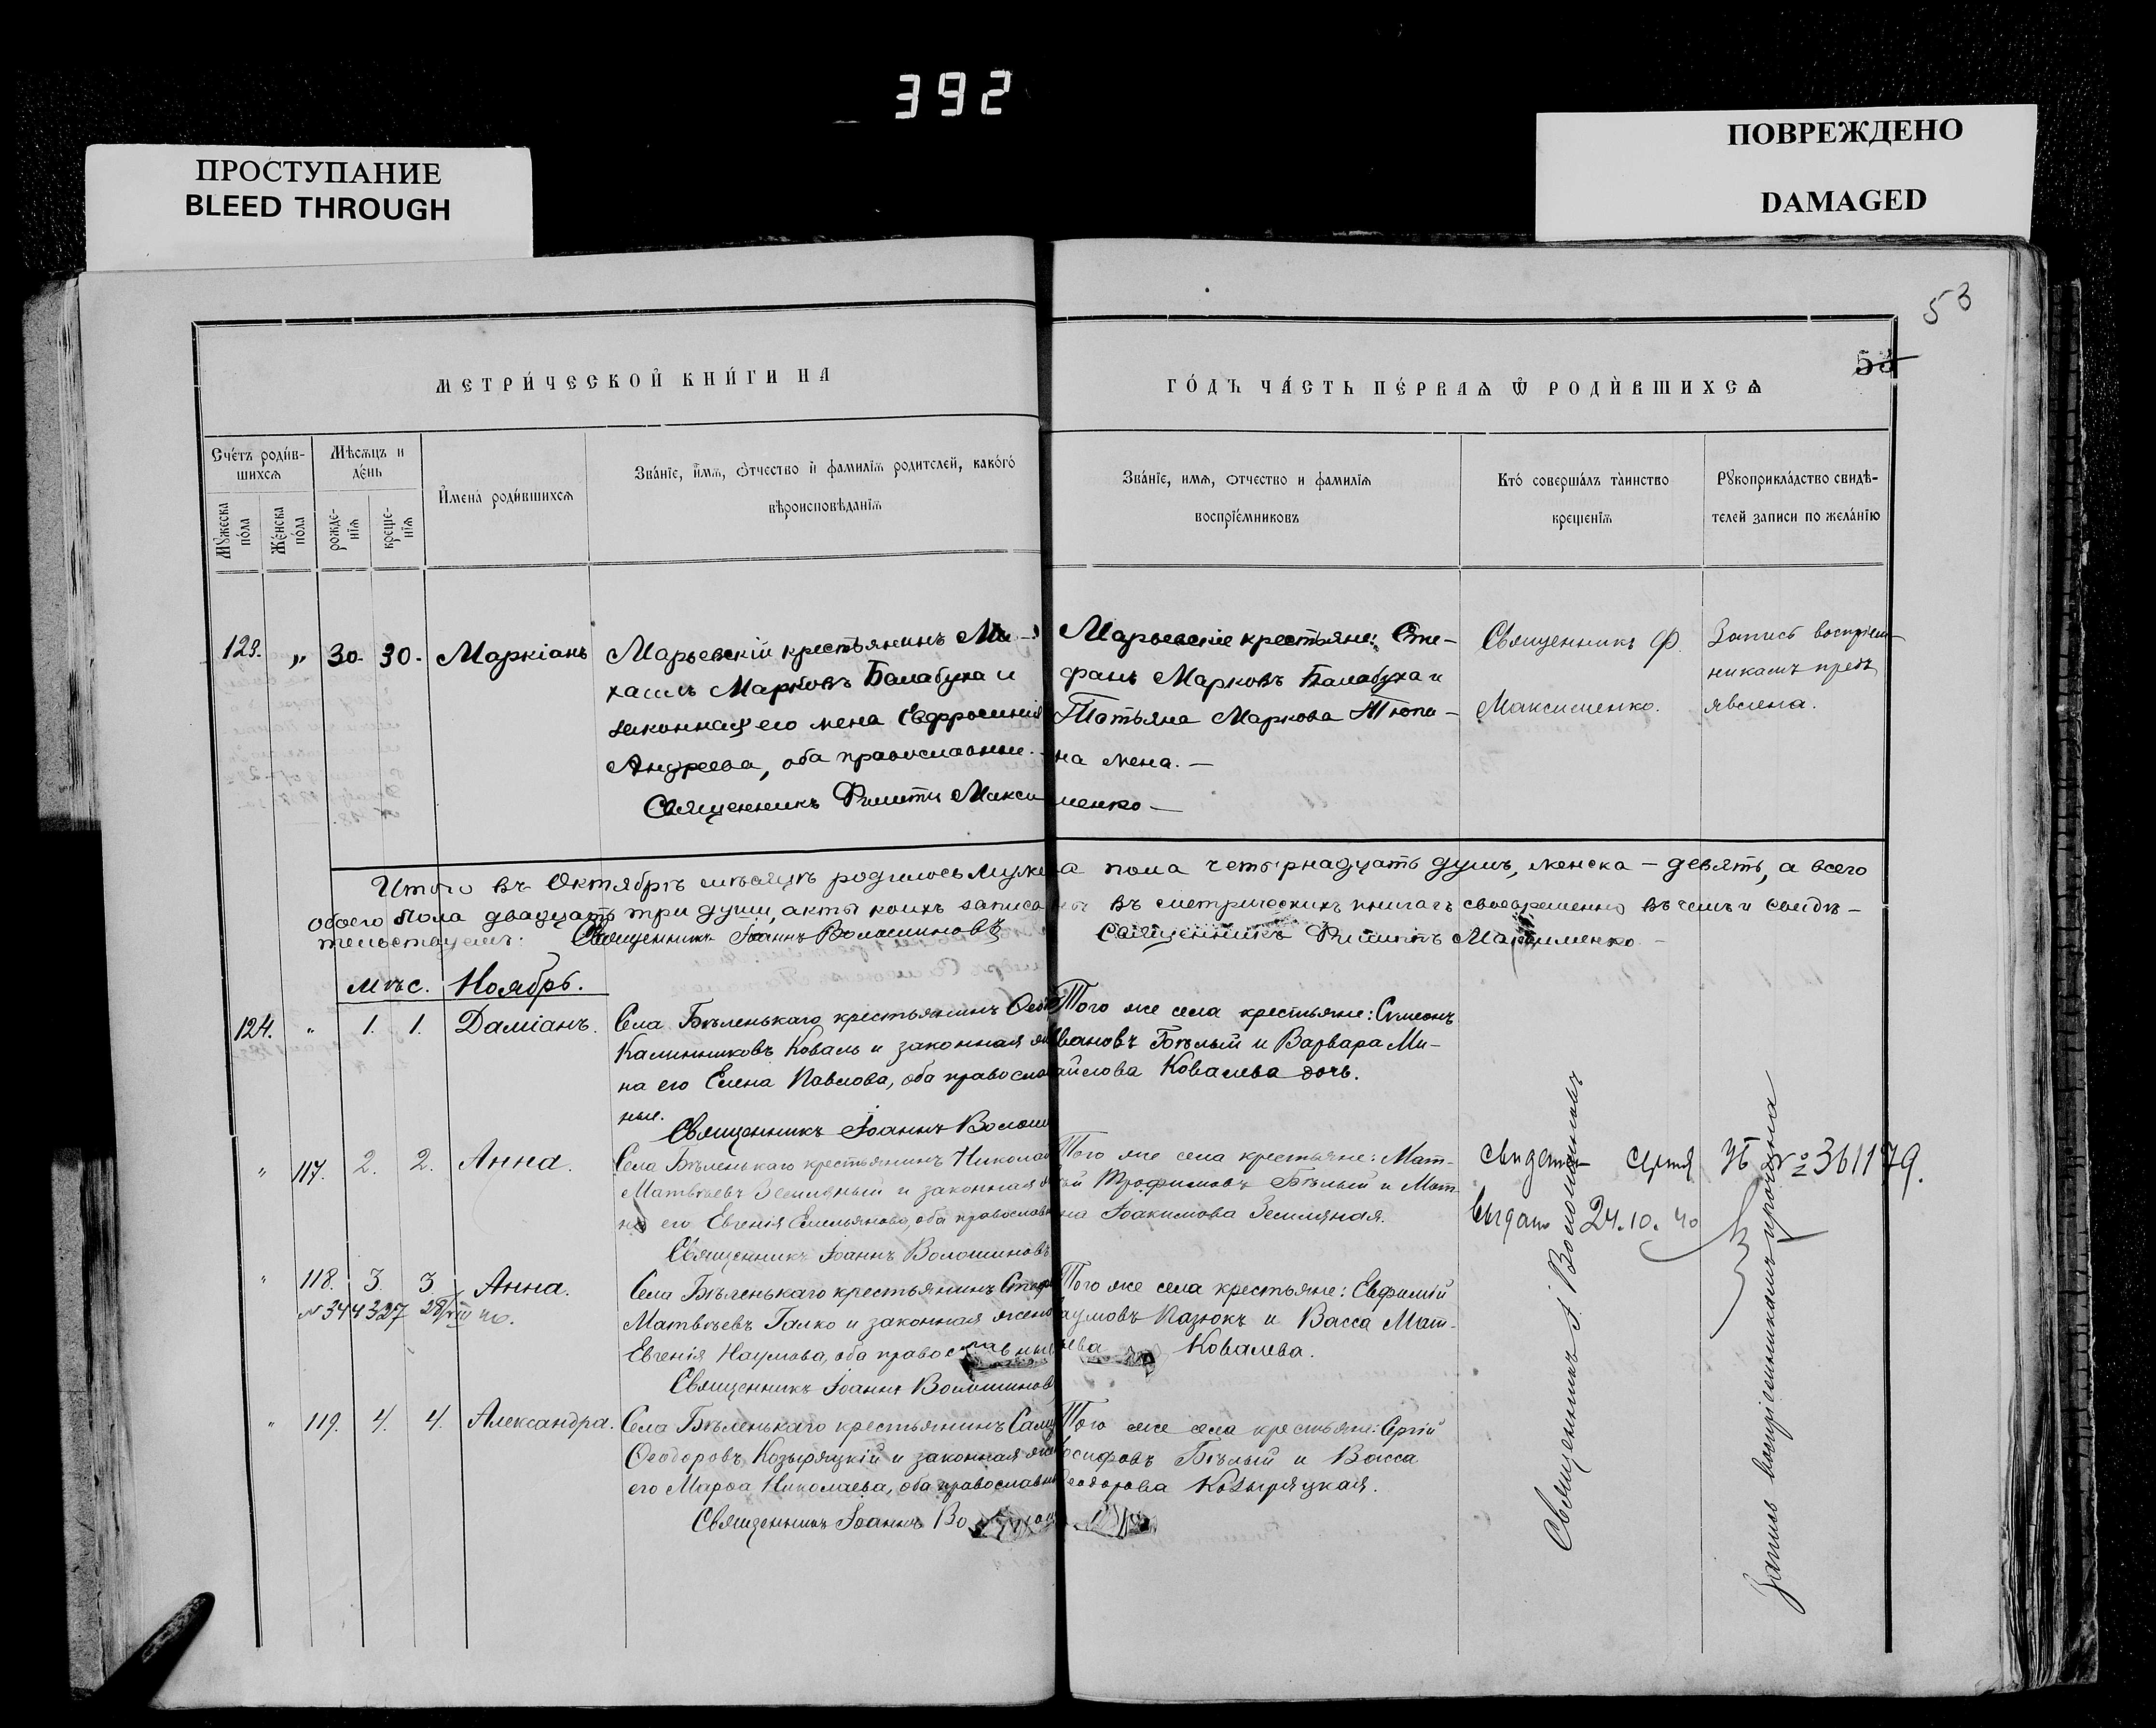 392
ПРОСТУПАНИЕ
BLEED THROUGH
ПОВРЕЖДЕНО
DAMAGED
53
53
МЕТРИ́ЧЕСКОЙ КНИ́ГИ НА
ГО́ДЪ ЧА́СТЬ ПЕ́РВАѦ Ѿ РОДИ́ВШИХСѦ
Сче́тъ роди́в-
шихсѧ
Мꙋ́жеска по́ла
Же́нска по́ла
Мѣ́сѧцъ и
де́нь
рожде-
нїѧ
креще-
нїѧ
И҆мена̀ роди́вшихсѧ
Зва́нїе, и҆́мѧ, ѻ҆́тчество и҆ фами́лїѧ роди́телей, како́гѡ
вѣроисповѣ́данїѧ
Зва́нїе, имѧ, ѻтчество и фами́лїѧ
воспрїе́мниковъ
Кто̀ соверша́лъ та̀инство
креще́нїѧ
Рꙋкоприкла́дство свидѣ́-
телей записи по жела́нїю
123. „ 30. 30. Маркіанъ
Марьевскій крестьянинъ Ми-
хаилъ Марковъ Балабуха и
законная его жена Евфросинія
Андреева, оба православные.
Священникъ Филиппъ Макси
Марьевскіе крестьяне: Сте-
фанъ Марковъ Балабуха и
Татьяна Маркова Тюпи-
на жена. —
менко —
Священникъ Ф.
Максименко.
Запись воспріем-
никамъ предъ
явлена.
Итого въ Октябрѣ мѣсяцѣ родилось мужеска пола четырнадцать душъ, женска — девять, а всего
обоего пола двадцать три души, акты коихъ записаны въ метрическихъ книгахъ своевременно въ чемъ и свидѣ-
тельствуемъ: Священникъ Іоаннъ Волошиновъ Священникъ Филиппъ Максименко —
Мѣс. Ноябрь.
124. „ 1. 1. Даміанъ.
Села Бѣленькаго крестьянинъ Ѳео
Калинниковъ Коваль и законная же
на его Елена Павлова, оба православ
ные.
Священникъ Іоаннъ Волоши
Того же села крестьяне: Симеонъ
Ивановъ Бѣлый и Варвара Ми-
хайлова Ковалева дочь.
„ 117. 2. 2. Анна.
Села Бѣленькаго крестьянинъ Николай
Матвѣевъ Земляный и законная же
на его Евгенія Емельянова, оба православн
Священникъ Іоаннъ Волошиновъ
Того же села крестьяне: Мат-
вѣй Трофимовъ Бѣлый и Мат
на Іоакимова Земляная.
№ 361179.
выдано 24.10.40
„ 118. 3. 3. Анна.
№ 344327 28/VIII 40.
Села Бѣленькаго крестьянинъ Стеф
Матвѣевъ Галко и законная жена
Евгенія Наумова, оба православные
Священникъ Іоаннъ Волошиновъ
Того же села крестьяне: Евфимій
Наумовъ Пазюкъ и Васса Мат-
ѣева Ковалева.
„ 119. 4. 4. Александра.
Села Бѣленькаго крестьянинъ Саму
Ѳеодоровъ Козыряцкій и законная жен
его Марѳа Николаева, оба православны
Священникъ Іоаннъ Во
Того же села крестьяне: Сергій
Іосифовъ Бѣлый и Васса
Ѳеодорова Козыряцкая.
Священникъ І. Волошиновъ
Запись воспріемникамъ прочтена